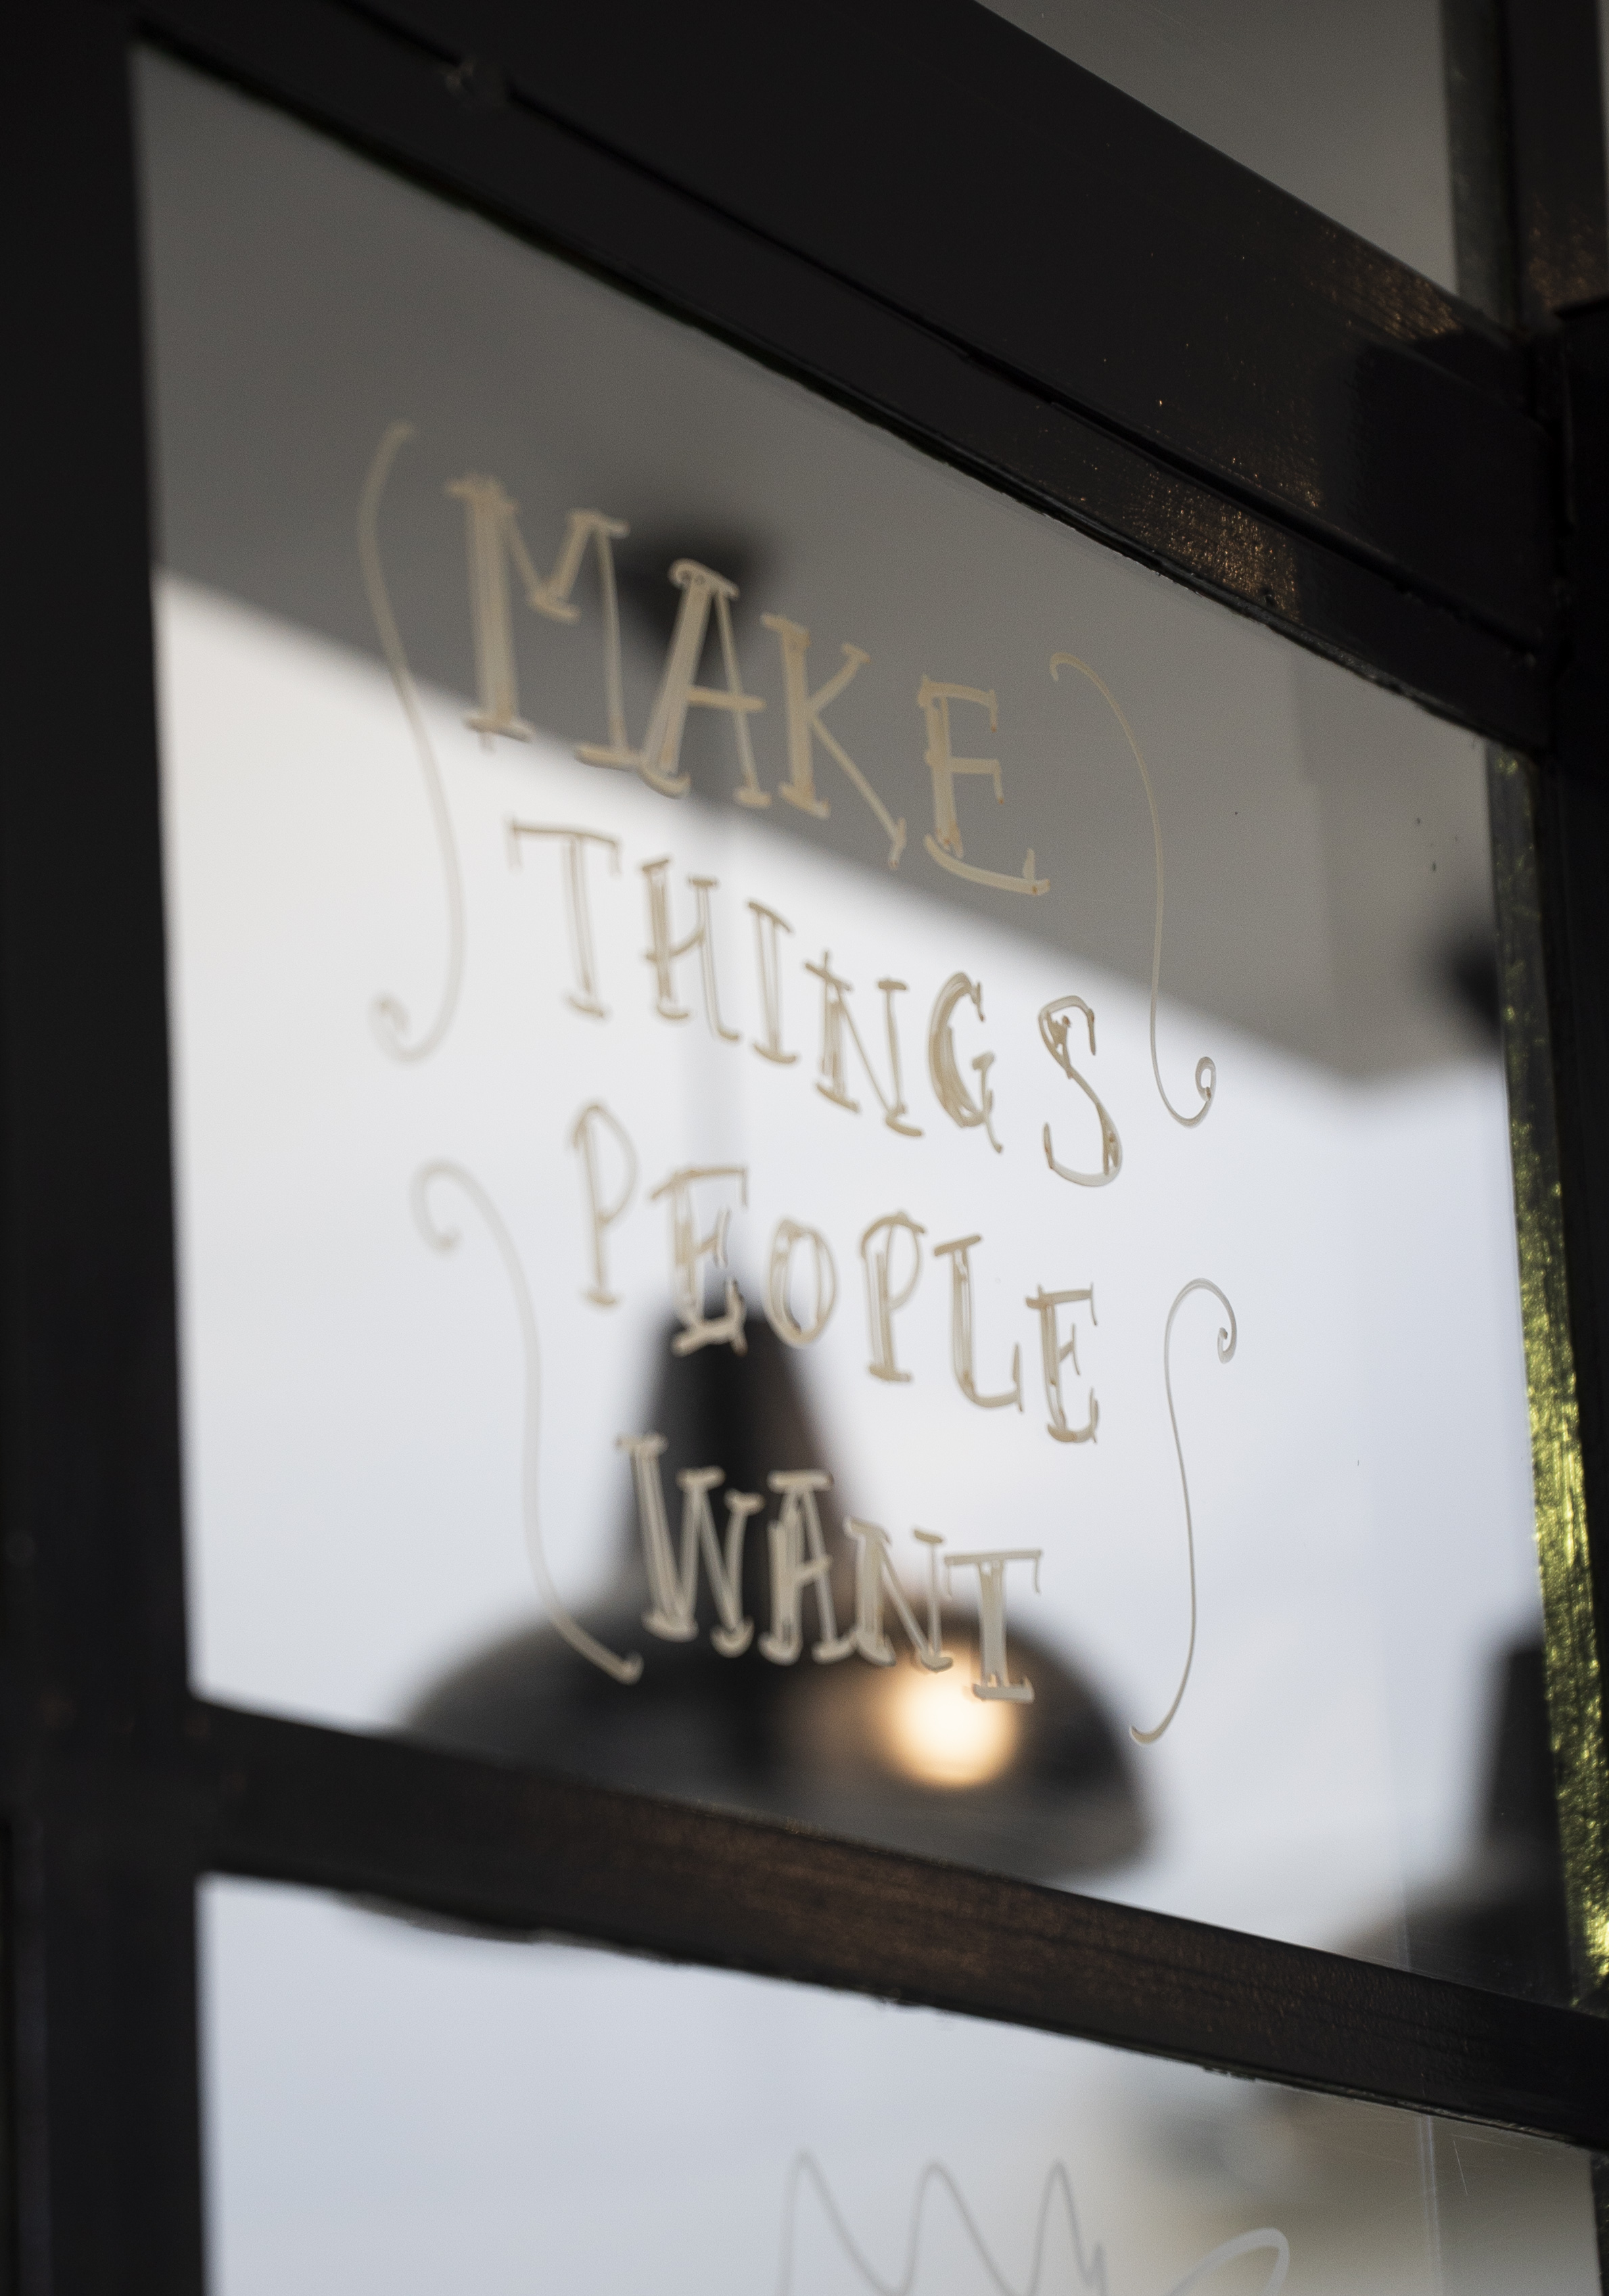 MAKE
THINGS
PEOPLE
WANT